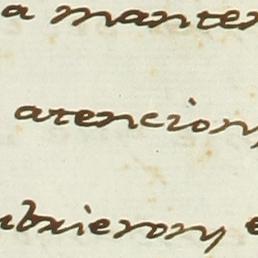 a manten
atencion,
ubrieron, e